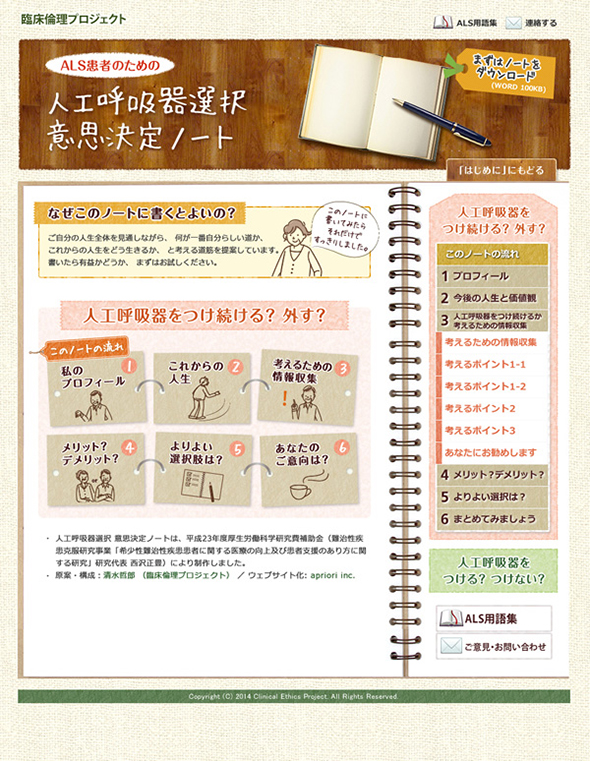 臨床倫理プロジェクト
ALS用語集
連絡する
ALS患者のための
人工呼吸器選択
意思決定ノート
まずはノートを
ダウンロード
(WORD 100KB)
「はじめに」にもどる
なぜこのノートに書くとよいの？
ご自分の人生全体を見通しながら、 何が一番自分らしい道か、
これからの人生をどう生きるか、 と考える道筋を提案しています。
書いたら有益かどうか、 まずはお試しください。
このノートに
書いてみたら
それだけで
すっきりしました。
人工呼吸器をつけ続ける？ 外す？
このノートの流れ
私の
プロフィール
1
これからの
人生
2
考えるための
情報収集
3
メリット？
デメリット？
4
よりよい
選択肢は？
5
あなたの
ご意向は？
6
・ 人工呼吸器選択 意思決定ノートは、平成23年度厚生労働科学研究費補助金（難治性疾
患克服研究事業「希少性難治性疾患患者に関する医療の向上及び患者支援のあり方に関
する研究」研究代表 西沢正豊）により制作しました。
・ 原案・構成：清水哲郎 （臨床倫理プロジェクト） ／ ウェブサイト化: apriori inc.
人工呼吸器を
つけ続ける？ 外す？
このノートの流れ
1 プロフィール
2 今後の人生と価値観
3 人工呼吸器をつけ続けるか
考えるための情報収集
考えるための情報収集
考えるポイント1-1
考えるポイント1-2
考えるポイント2
考えるポイント3
あなたにお勧めします
4 メリット？デメリット？
5 よりよい選択は？
6 まとめてみましょう
人工呼吸器を
つける？ つけない？
ALS用語集
ご意見・お問い合わせ
Copyright (C) 2014 Clinical Ethics Project. All Rights Reserved.